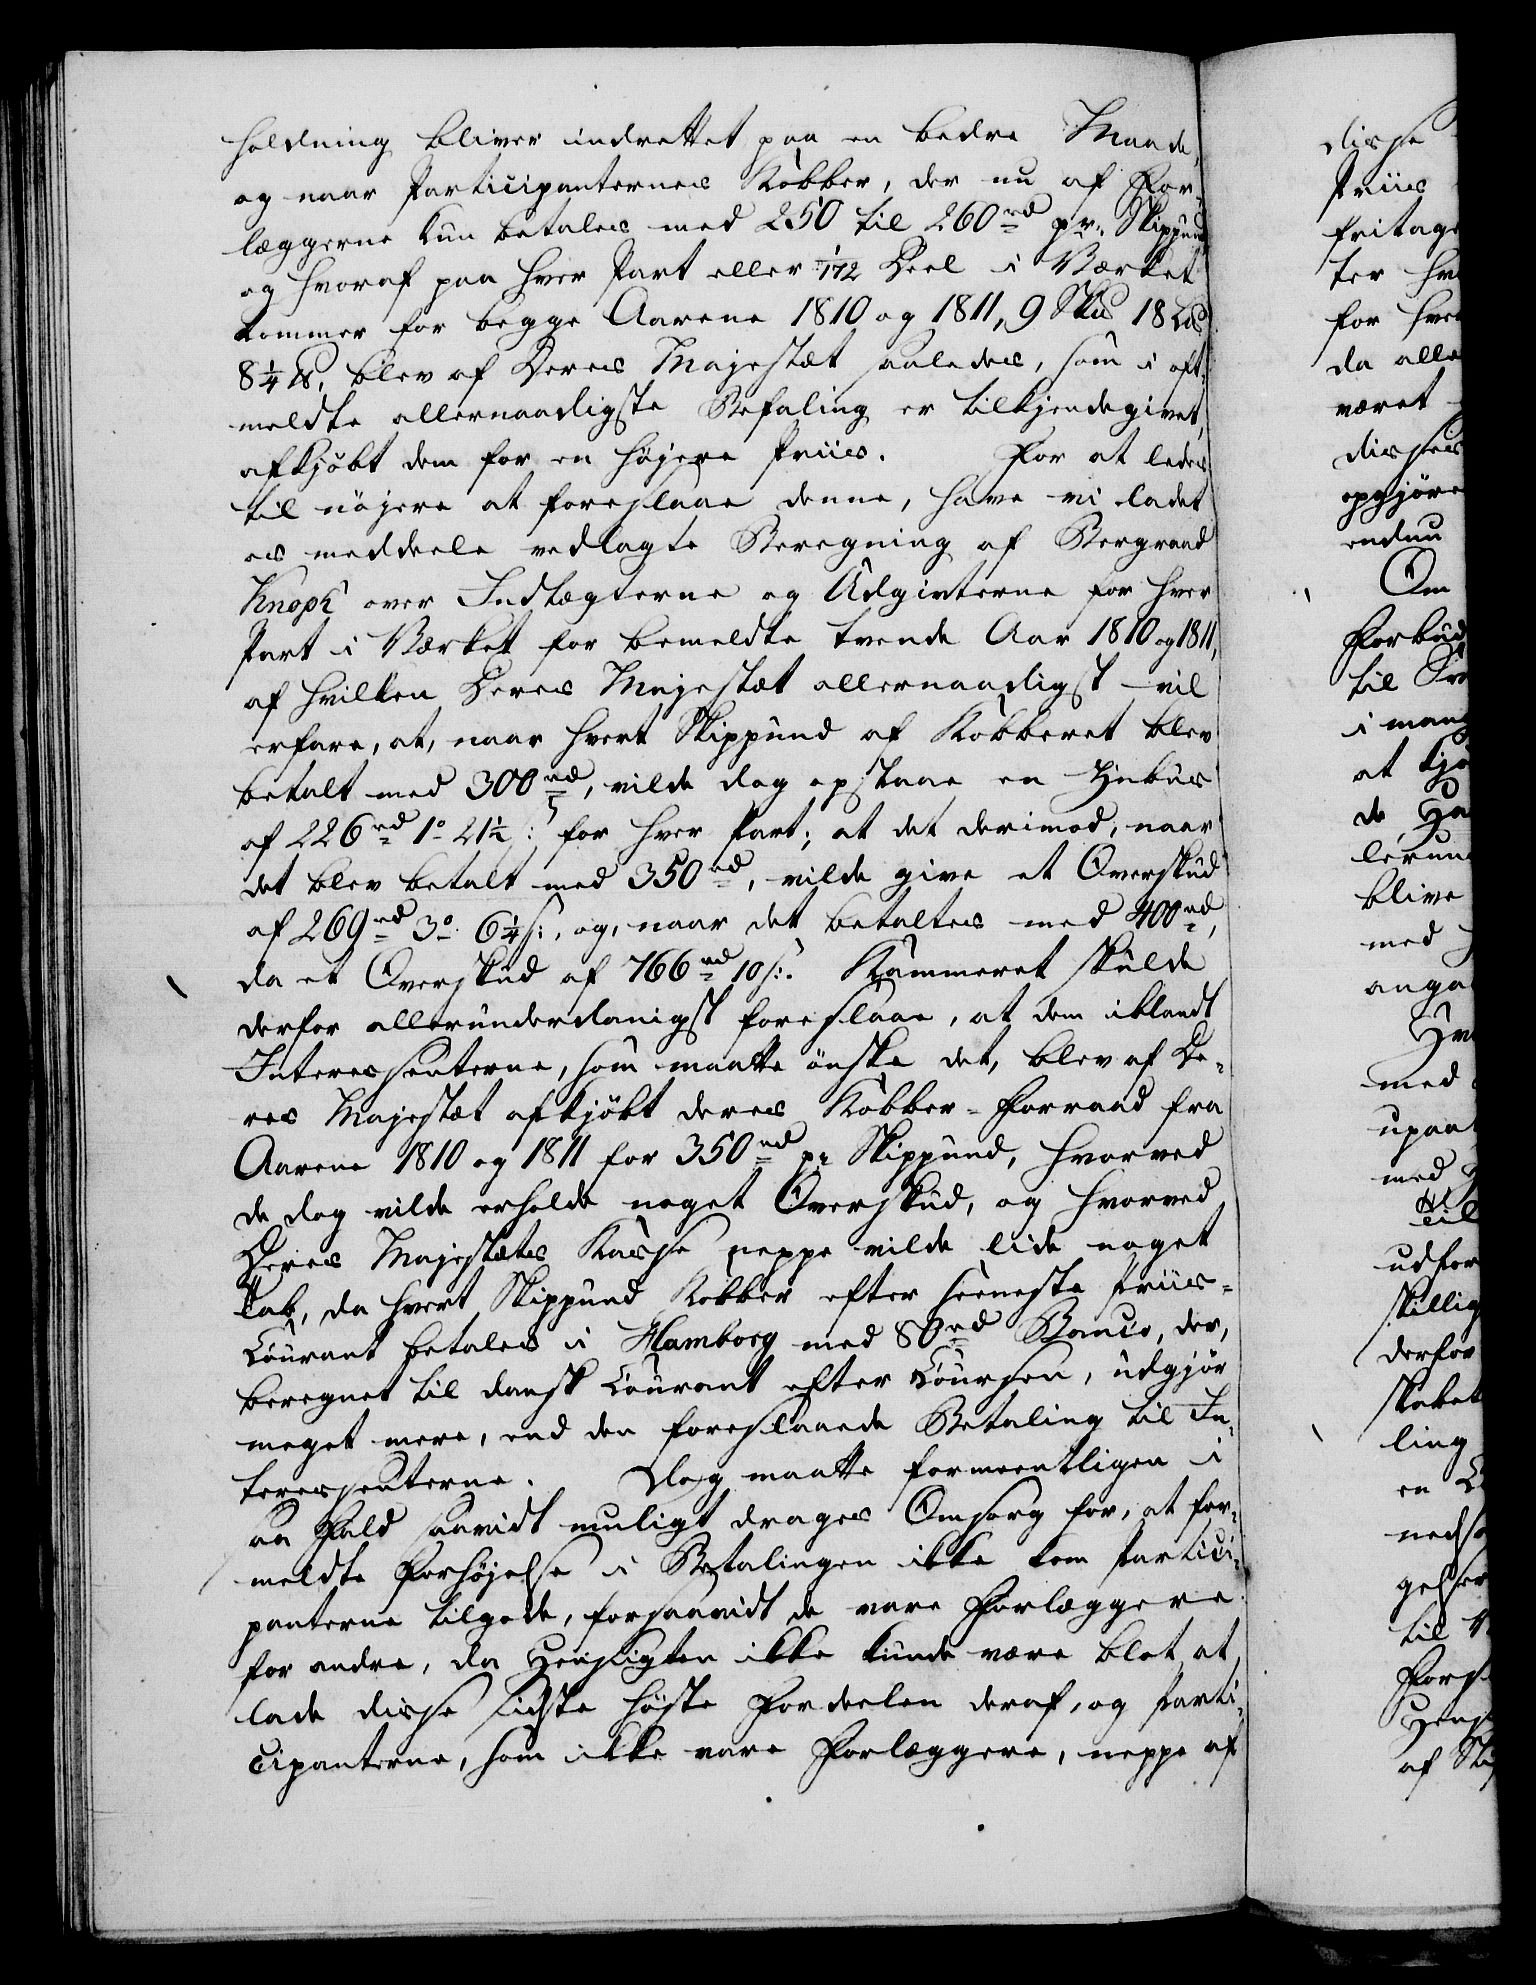 holdning bliver indrettet paa en bedre Maade,
og naar Participanternes Kobber, der nu af For-
læggerne kun betales med 250 til 260 rd pr. Skippund
og hvoraf paa hver Part eller 1/172 Deel i Værket
kommer for begge Aarene 1810 og 1811, 9 Sk℔ 18 L℔
8 1/4 ℔, blev af Deres Majestæt saaledes, som i oft-
meldte allernaadigste Befaling er tilkjendegivet,
afkjøbt dem for en højere Priis. For at ledes
til nöjere at foreslaae denne, have vi ladet
os meddeele vedlagte Beregning af Bergraad
Knoph over Indtægterne og Udgivterne for hver
Part i Værket for bemeldte tvende Aar 1810 og 1811,
af hvilken Deres Majestæt allernaadigst vil
erfare, at, naar hvert Skippund af Kobberet blev
betalt med 300 rd, vilde dog opstaae en Zubus
af 226 rd 1 o 21 1/2 s: for hver Part; at det derimod, naar
det blev betalt med 350 rd, vilde give et Overskud
af 269 rd 3 o 6 1/4 s:, og, naar det betaltes med 400 rd,
da et Overskud af 766 rd 10 s:. Kammeret skulde
derfor allerunderdanigst foreslaae, at dem iblandt
Interessenterne, som maatte önske det, blev af De-
res Majestæt afkjøbt deres Kobber-Forraad fra
Aarene 1810 og 1811 for 350 rd pr Skippund, hvorved
de dog vilde erholde noget Overskud, og hvorved
Deres Majestæts Kasse neppe vilde lide noget
Tab, da hvert Skippund Kobber efter seeneste Priis-
Courant betales i Hamborg med 80 rd Banco, der,
beregnet til dansk Courant efter Coursen, udgjör
meget mere, end den foreslaaede Betaling til In-
teressenterne. Dog maatte formeentligen i
saa Fald saavidt muligt drages Omsorg for, at for-
meldte Forhøjelse i Betalingen ikke kom Partici-
panterne tilgode, forsaavidt de vare Forlæggere
for andre, da Hensigten ikke kunde være blot at
lade disse sidste höste Fordeelen deraf, og Parti-
cipanterne, som ikke vare Forlæggere, neppe af
disse
Priis
fritage
ter
for
da alle
været
disses
opgjøre
endnu
Om
Forbud
til
i mang
at
de
blive
med
med
med
til
udfor
skillig
derfor
skabet
ling
en
til
af